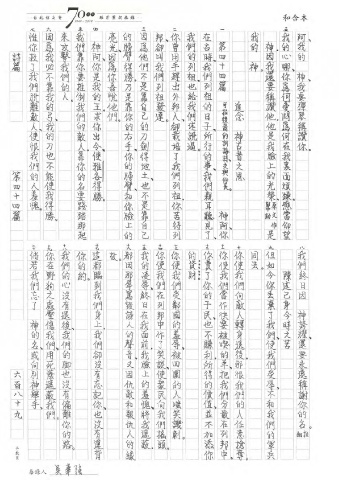 和合本
阿我的 神我要彈琴稱讚你
我的心哪你為何憂悶為何在我裏面煩躁應當仰望
神因我還要稱讚他他是我臉上的光榮
第四十四篇
追念 神古昔之恩
神阿你
在古時我們列祖的日子所行的事我們親耳聽見了
我們的列祖也給我們述說過
你曾用手趕出外邦人卻栽培了我們列祖你苦待列
邦卻叫我們列祖發達
因為他們不是靠自己的刀劍得地土也不是靠自己
的膀臂得勝乃是靠你的右手你的膀臂和你臉上的
亮光因為你喜悅他們
神阿你是我的王求你出令使雅各得勝
我們靠你要推倒我們的敵人靠你的名要踐踏那起
來攻擊我們的人
因為我必不靠我的弓我的刀也不能使我得勝
惟你救了我們脫離敵人使恨我們的人羞愧
我們終日因 神誇耀還要永遠稱謝你的名
陳述己身今時之苦
但如今你丟棄了我們使我們受辱不和我們的軍兵
同去
你使我們向敵人轉身退後那恨我們的人任意搶奪
你使我們當作快要被吃的羊把我們分散在列邦中
你賣了你的子民也不賺利所得的價值並不加添你
的資財
你使我們受鄰國的羞辱被四圍的人嗤笑譏刺
你使我們在列邦中作了笑談使眾民向我們搖頭
我的凌辱終日在我面前我臉上的羞愧將我遮蔽
都因那辱罵毀謗人的聲音又因仇敵和報仇人的緣
故
這都臨到我們身上我們卻沒有忘記你也沒有違背
你的約
我們的心沒有退後我們的腳也沒有偏離你的路
你在野狗之處壓傷我們用死蔭遮蔽我們
倘若我們忘了 神的名或向別神舉手
詩篇
第四十四篇
六百八十九